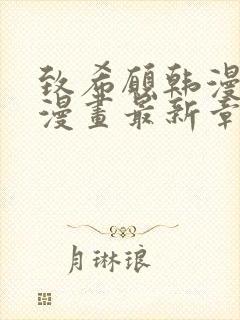 致希愿韩漫
漫畫最新章
月琳琅